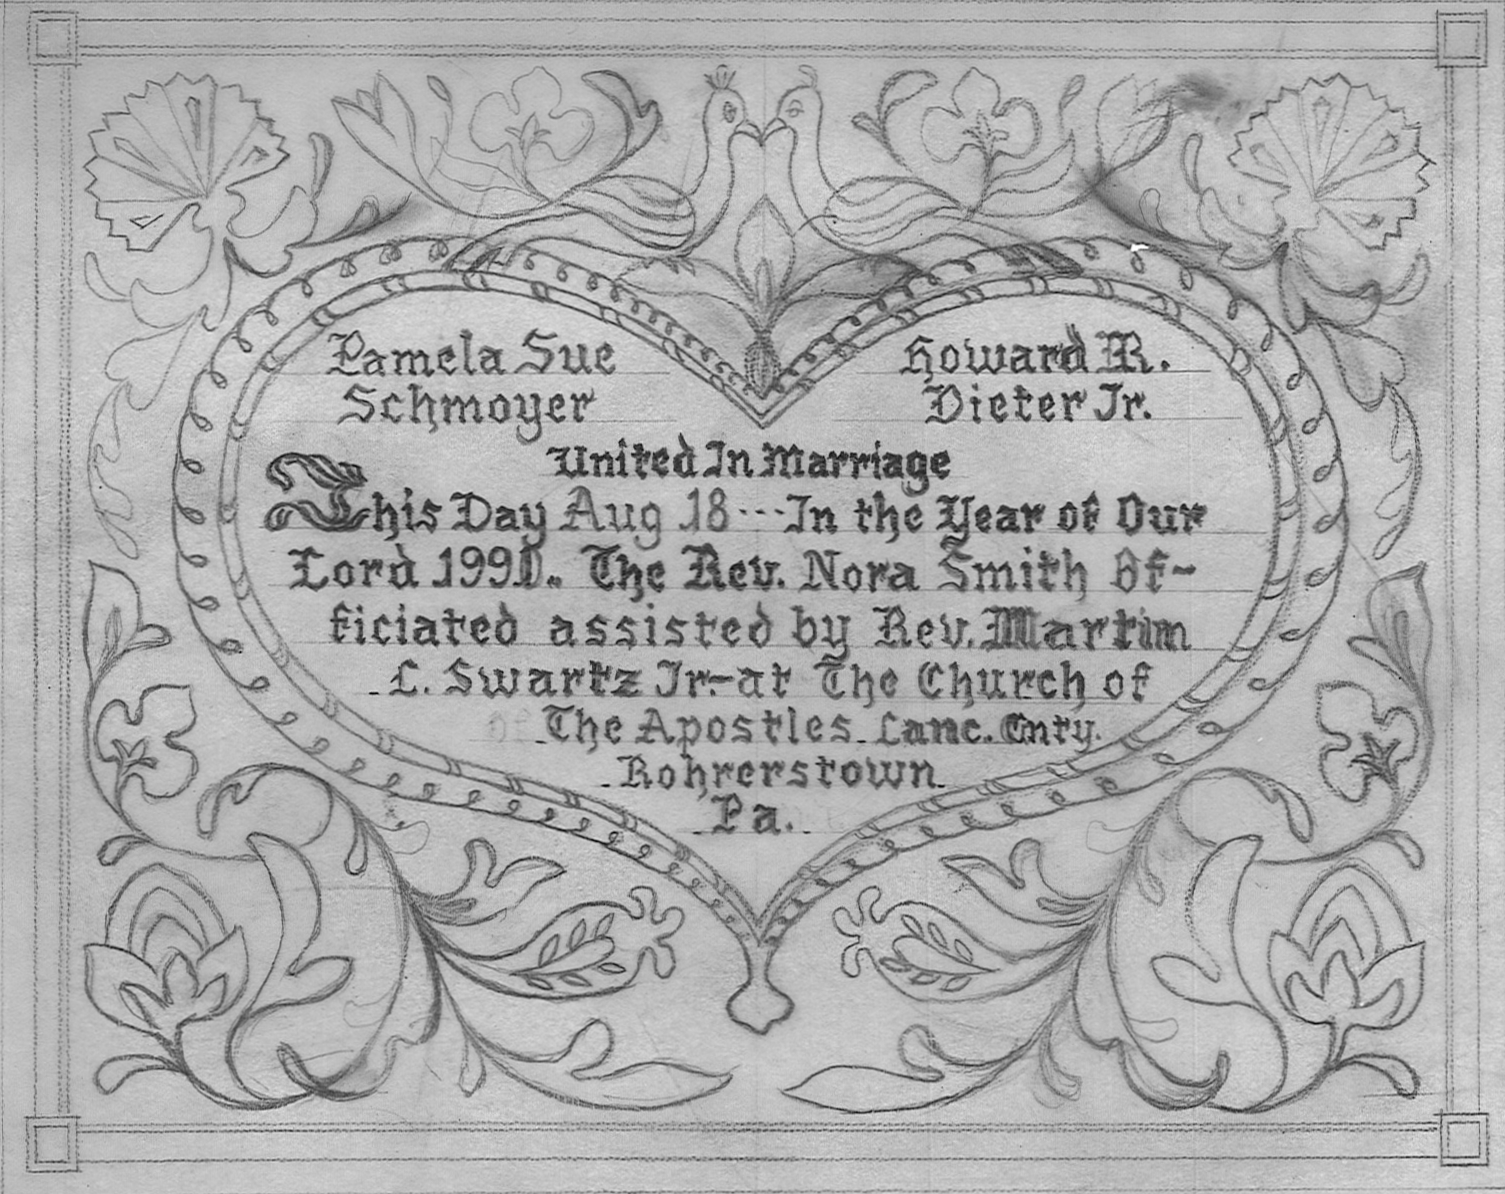 Pamela Sue
Schmoyer
Howard R.
Dieter Jr.
United In Marriage
This Day Aug 18---In the Year of Our
Lord 1990. The Rev. Nora Smith Of-
ficiated assisted by Rev. Martin
L. Swartz Jr-at The Church of
The Apostles Lanc. Cnty.
Rohrerstown
Pa.